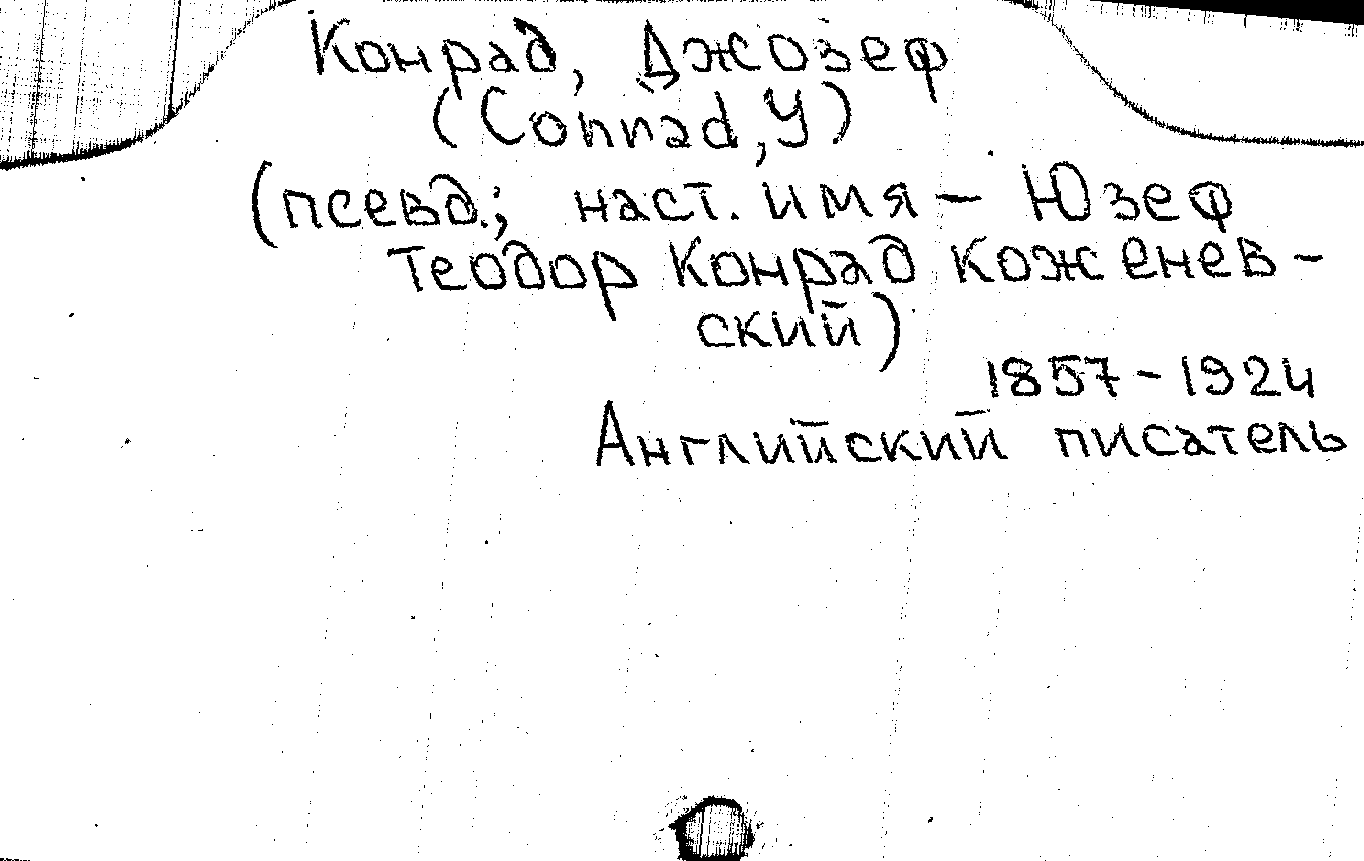 Конрад, Джозеф
(Conrad, Y)
(псевд.; наст. имя - Юзеф
Теодор Конрад Коженев-
ский)
1857-1924
Английский писатель